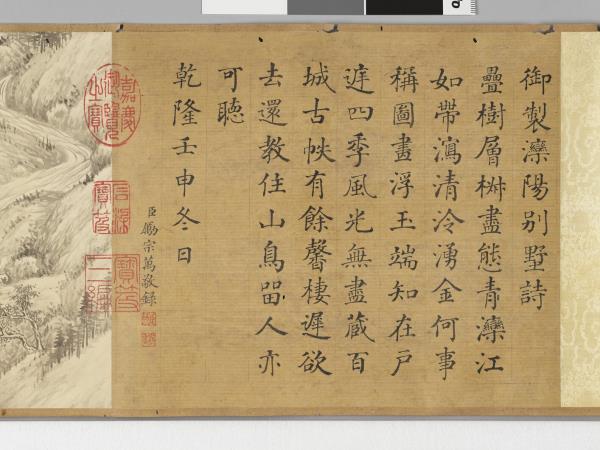 御製灤陽别墅詩
疊樹層椒盡態青灤江
如帶瀉清泠湧金何事
稱圖畫浮玉端知在戶
庭四季風光無盡藏百
城古帙有餘馨棲遲欲
去還教住山鳥㽞人亦
可聽
乾隆壬申冬日
臣勵宗萬敬録
嘉慶御覽之寶
石渠寶笈
寶笈三編